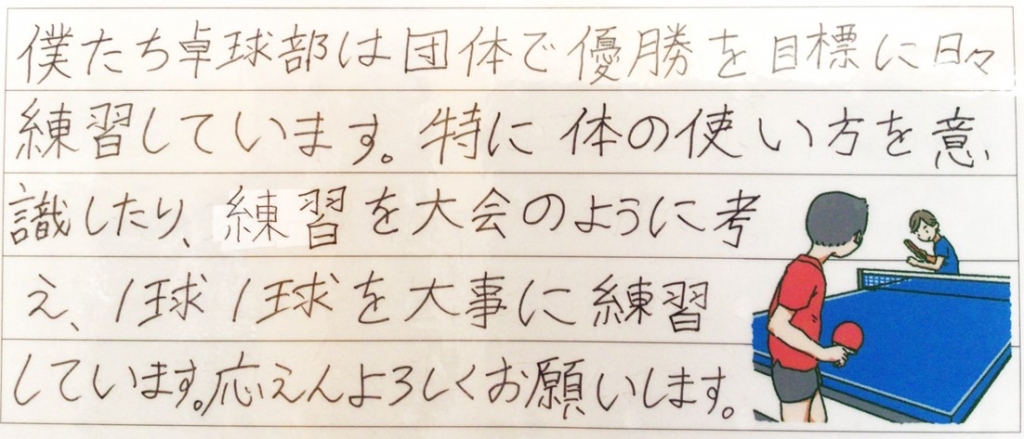 僕たち卓球部は団体で優勝を目標に日々
練習しています。特に体の使い方を意
識したり、練習を大会のように考
え、1球1球を大事に練習
しています。応えんよろしくお願いします。